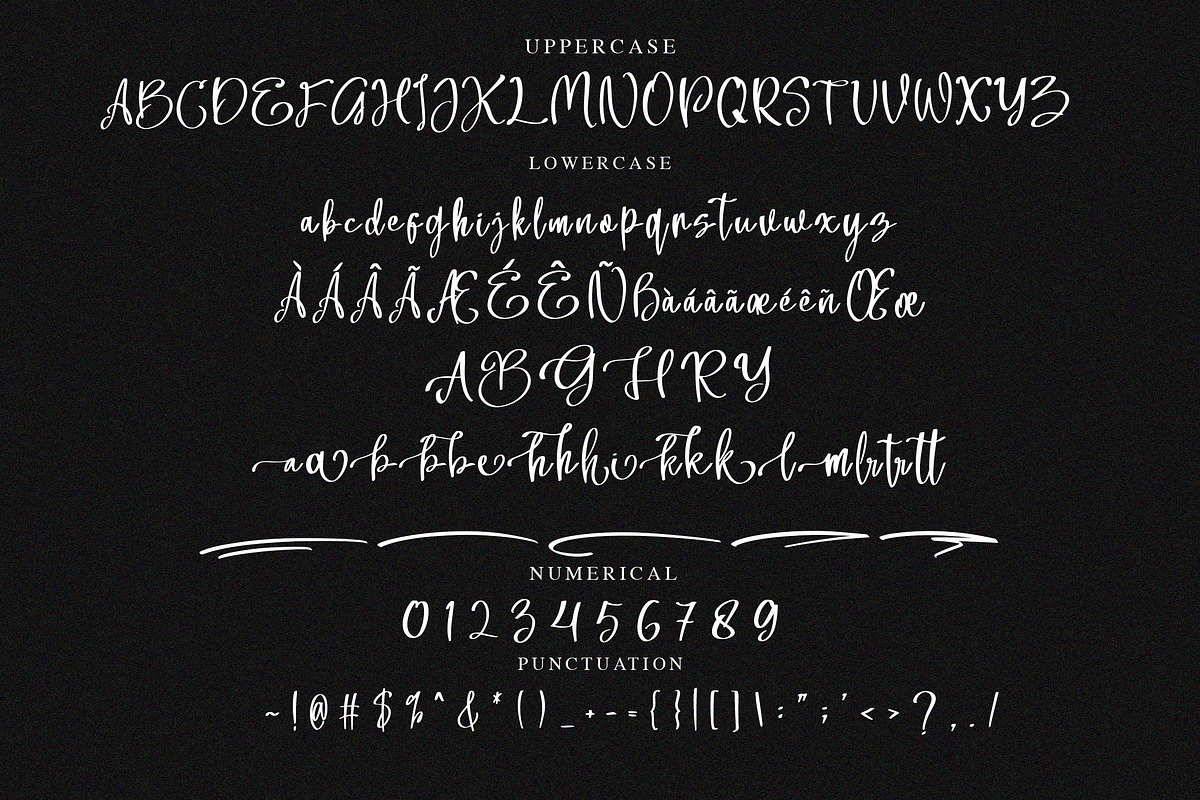 UPPERCASE
ABCDEFGHIJKLMNOPQRSTUVWXYZ
LOWERCASE
abcdefghijklmnopqrstuvwxyz
ÀÁÂÃÆÉÊÑBàáâãæéêñŒœ
ABGHRY
aabbbehhhikkklmlrtrtt
NUMERICAL
0123456789
PUNCTUATION
~!@#$%^&*()_+-={}|[]\:";'<>?,./